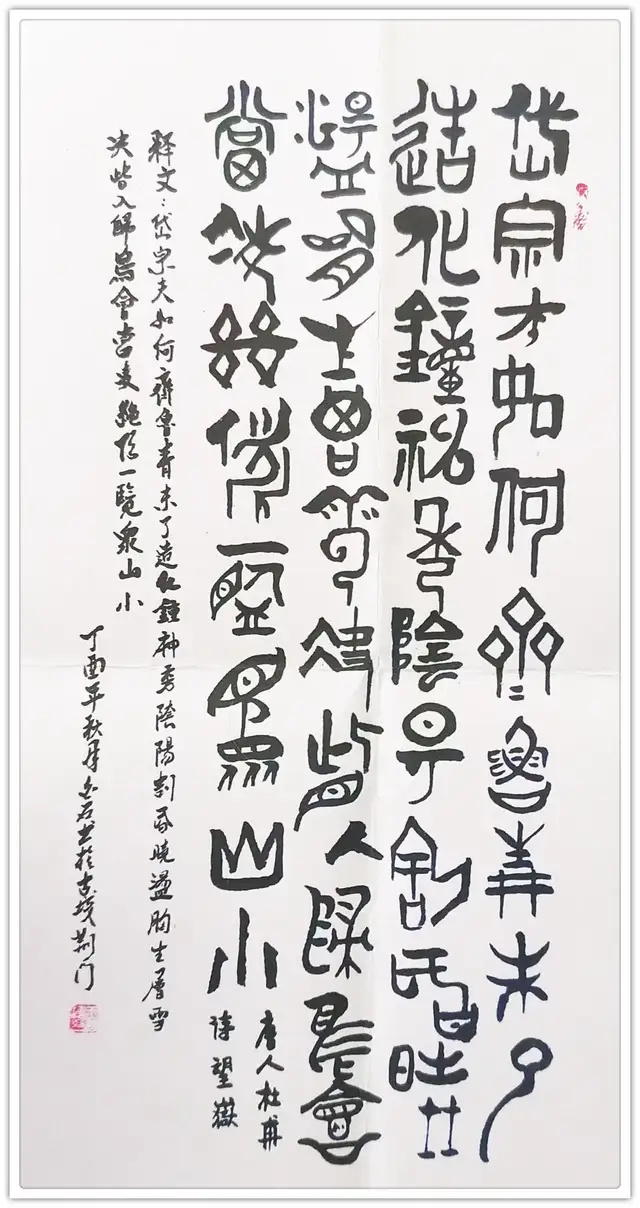 岱宗夫如何齊魯青未了
造化鐘神秀陰陽割昏曉
盪胸生曾雲決眥入歸鳥會
當凌絕頂一覽眾山小
唐人杜甫
诗望嶽
释文：岱宗夫如何齊魯青未了造化鍾神秀陰陽割昏曉盪胸生層雲
决眥入歸鳥會當凌絕頂一覽眾山小
丁酉年秋月金石书於古城荆门